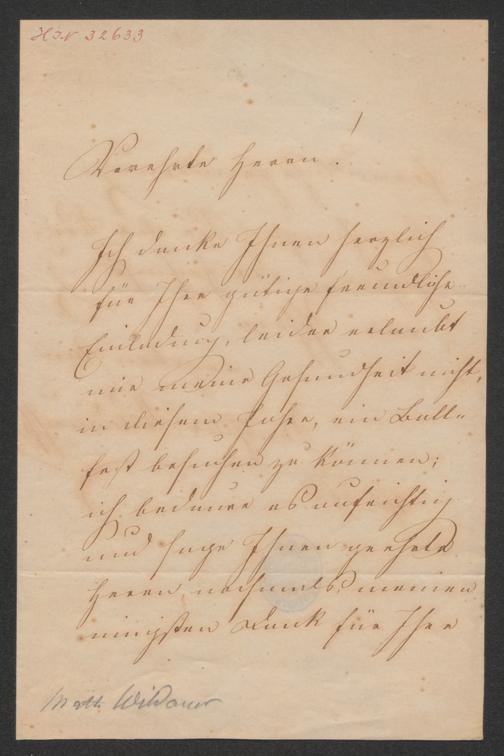 H.I.N. 32633
Verehrte Herrn!
Ich danke Ihnen herzlich
für Ihre gütige freundliche
Einladung, leider erlaubt
mir meine Gesundheit nicht,
in diesem Jahre, ein Ball-
fest besuchen zu können;
ich bedaure es aufrichtig
und sage Ihnen geehrte
Herrn nochmals meinen
innigsten Dank für Ihre
Math. Wildauer